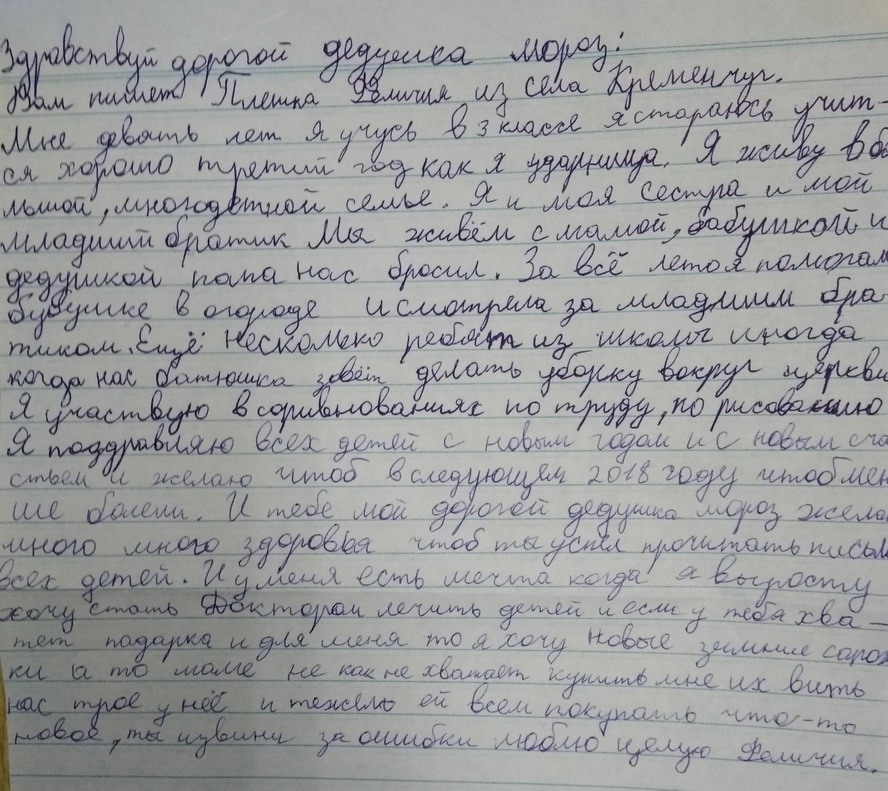 Здравствуй дорогой дедушка мороз!
Вам пишет Плешка Феличия из села Кременчуг.
Мне девять лет я учусь в 3 классе я стараюсь учит-
ся хорошо третий год как я ударница. Я живу в бо
льшой, многодетной семье. Я и моя сестра и мой
младший братик Мы живём с мамой, бабушкой и
дедушкой папа нас бросил. За всё лето я помогал
бубушке в огороде и смотрела за младшим бра-
тиком. Ещё несколько ребят из школы иногда
когда нас батюшка зовёт делать уборку вокруг церкви
Я участвую в соривнованиях по труду, по рисованию
Я поздравляю всех детей с новым годом и с новым сча
стьем и желаю чтоб в следующем 2018 году чтоб мен
ше болели. И тебе мой дорогой дедушка мороз жела
много много здоровья чтоб ты успел прочитать письм
всех детей. И у меня есть мечта когда я выросту
хочу стать Доктором лечить детей и если у тебя хва-
тет падарка и для меня то я хочу новые зимние сапож
ки а то маме не как не хватает купить мне их вить
нас трое у неё и тежело ей всем покупать что-то
новое, ты извини за ошибки люблю целую Феличия.